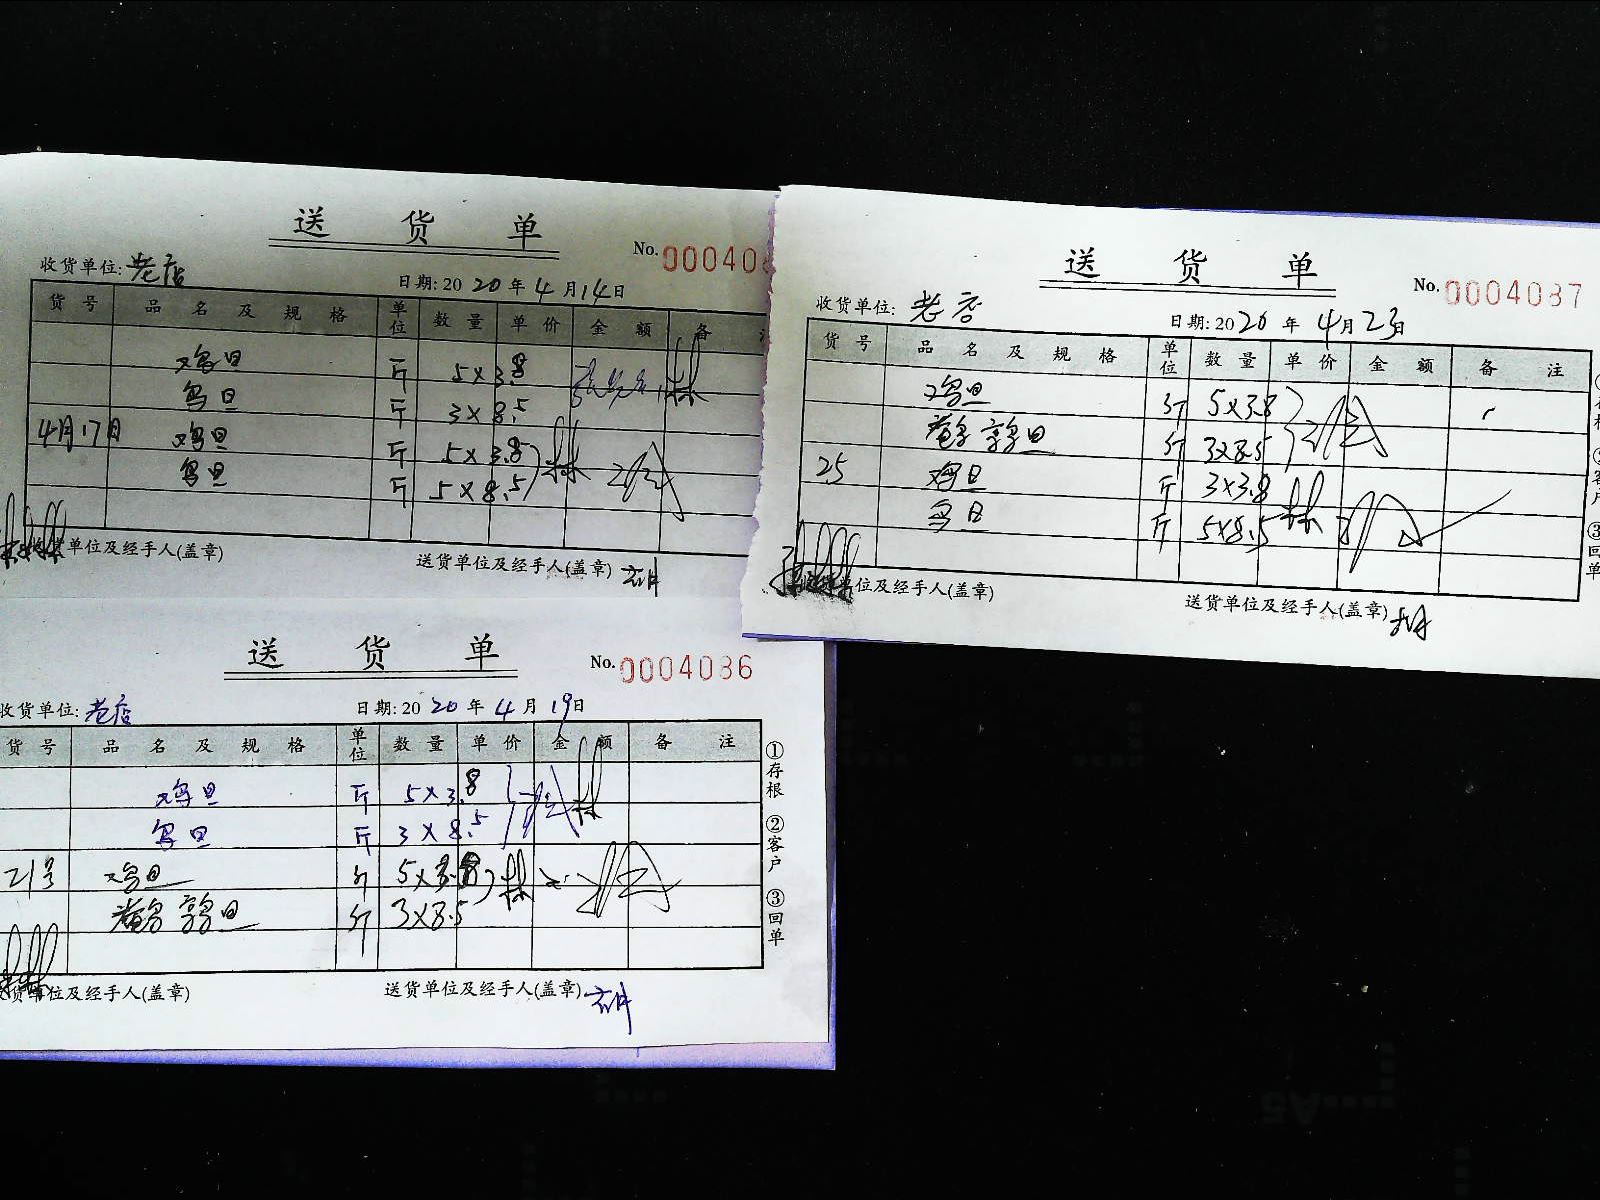 送 货 单
No. 000408
收货单位: 老店
日期: 2020年4月14日
货号 品名及规格 单位 数量 单价 金额 备注
鸡旦 斤 5×3.8
鸟旦 斤 3×8.5
4月17日 鸡旦 斤 5×3.8
鸟旦 斤 5×8.5
货单位及经手人(盖章)
送货单位及经手人(盖章)
送 货 单
No. 0004087
收货单位: 老店
日期: 2020年4月23日
货号 品名及规格 单位 数量 单价 金额 备注
鸡旦 斤 5×3.8
鹌鹑旦 斤 3×8.5
25 鸡旦 斤 3×3.8
鸟旦 斤 5×8.5
单位及经手人(盖章)
送货单位及经手人(盖章)
送 货 单
No. 0004086
收货单位: 老店
日期: 2020年4月19日
货号 品名及规格 单位 数量 单价 金额 备注
鸡旦 斤 5×3.8
鸟旦 斤 3×8.5
21号 鸡旦 斤 5×3.8
鹌鹑旦 斤 3×8.5
收货单位及经手人(盖章)
送货单位及经手人(盖章)
①存根 ②客户 ③回单